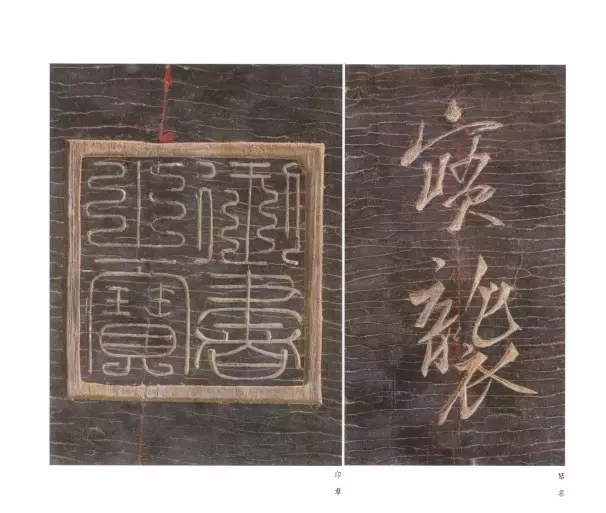 寶襲
御書
之寶
印章
琴名